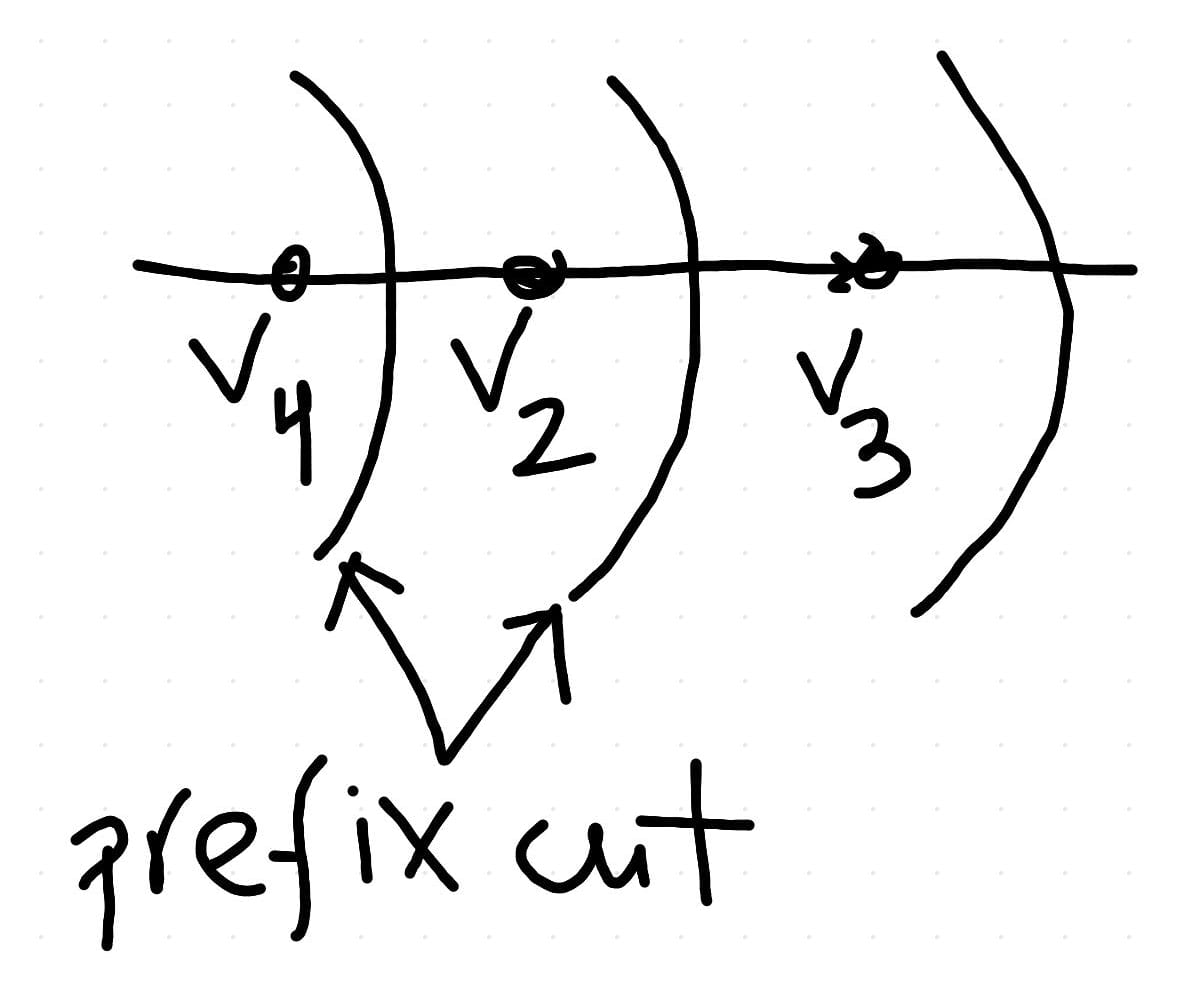 V4 V2 V3
prefix cut